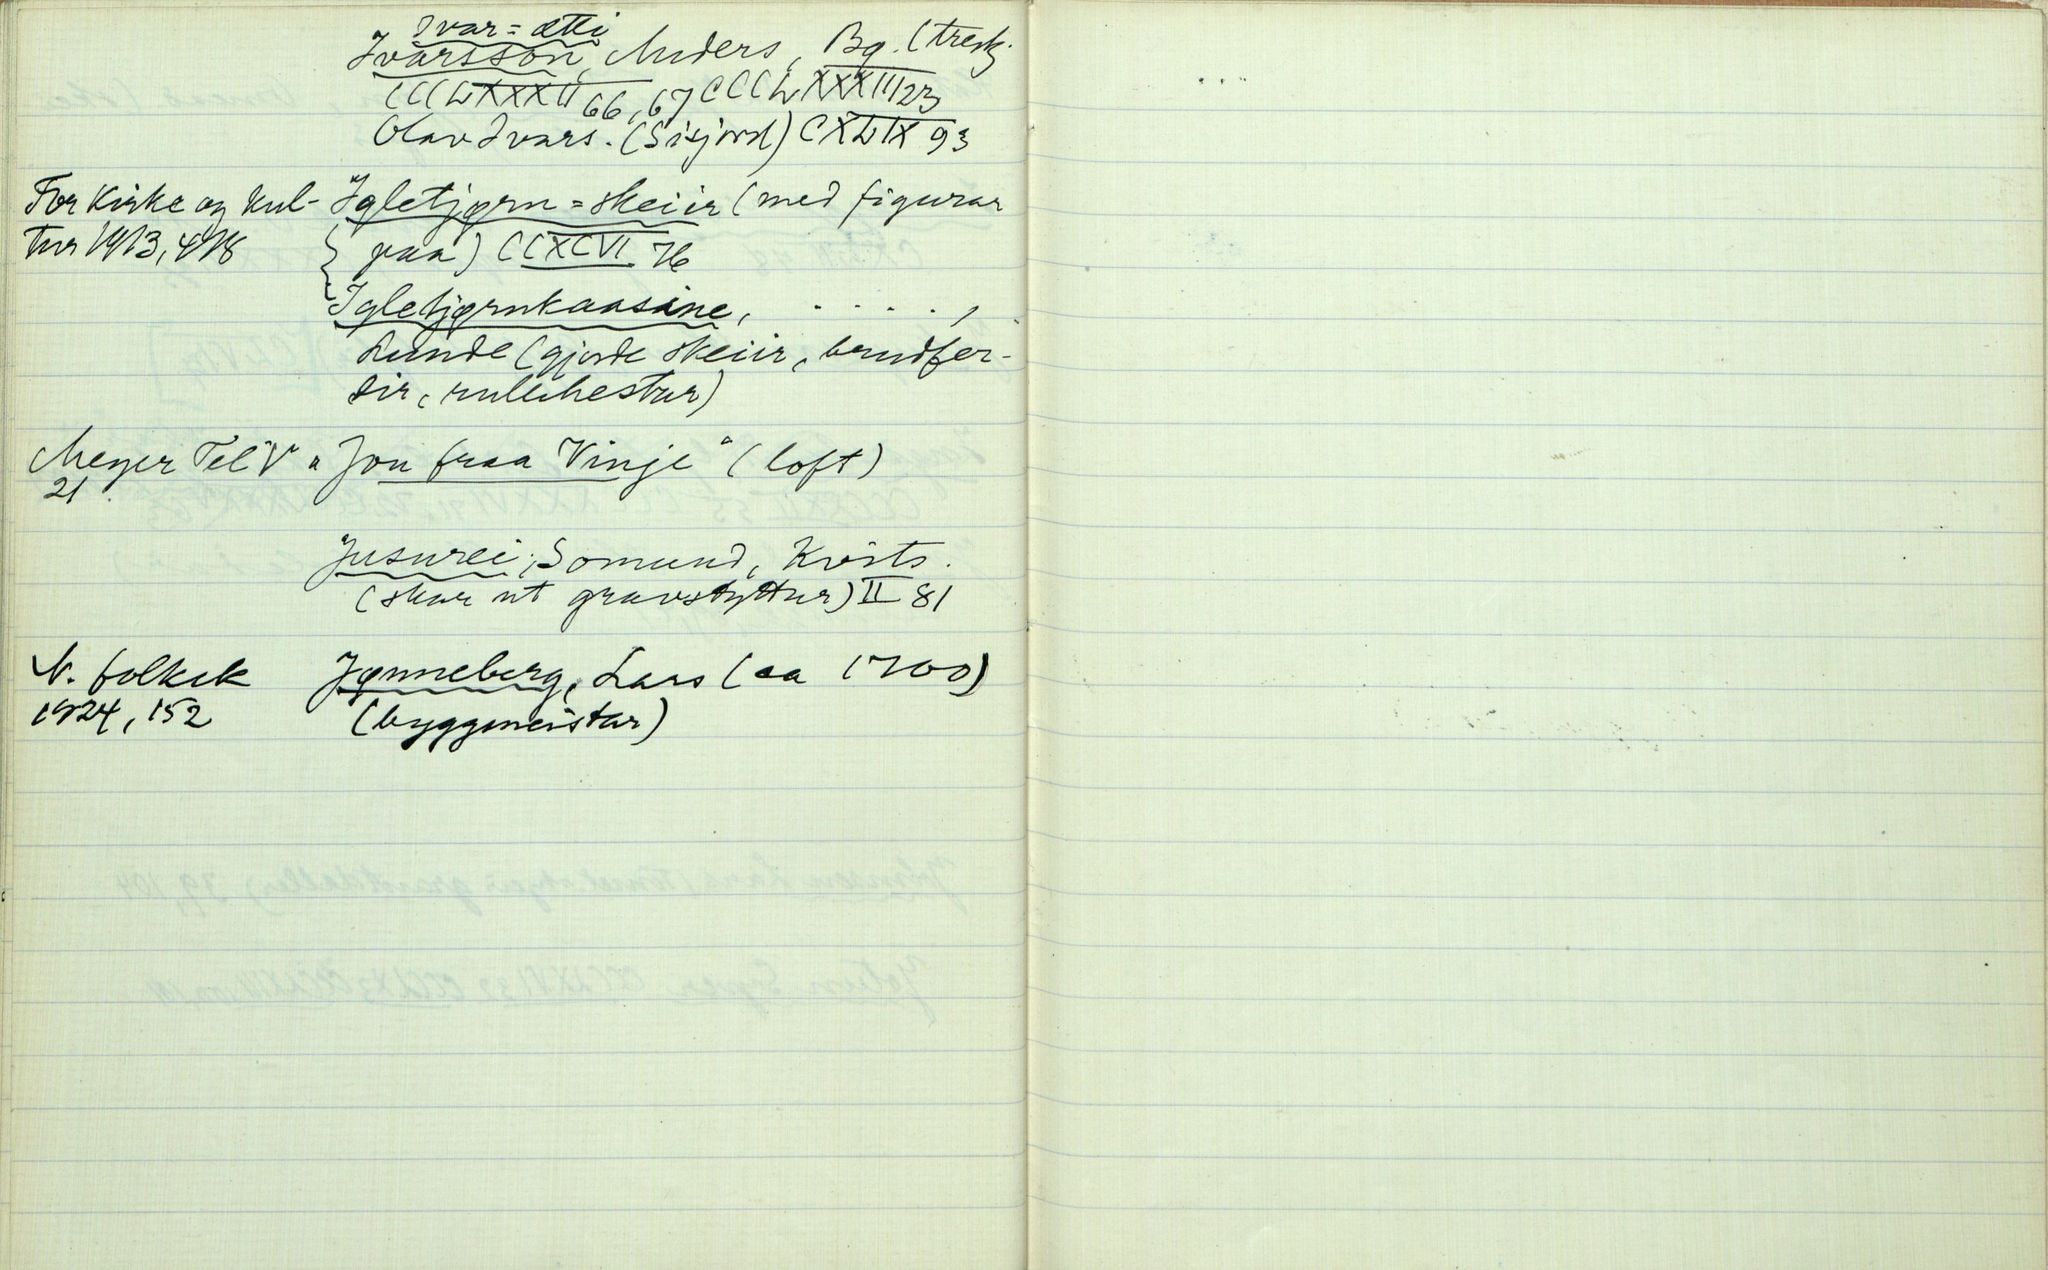 Ivar = ætti
Ivarsson, Anders, Bg. (tresk.
CCCLXXXII 66, 67 CCCLXXXIII 23
Olav Ivars. (Sisjord) CXLIX 93
For Kirke og Kul- "Igletjørn = skeiir (med figurar
tur 1913, 418 paa) CCXCVI 76
Igletjørnkaasine, . . . . ,
Lunde (gjorde skeiir, brudfer-
dir, rullehestar)
Meyer Tel V „Jon fraa Vinje“ (loft)
21.
Jusurei, Somund, Kvits.
(skar ut gravstyttur) II 81
N. folkek Jønneberg, Lars (ca 1700)
1924, 152 (byggmeistar)